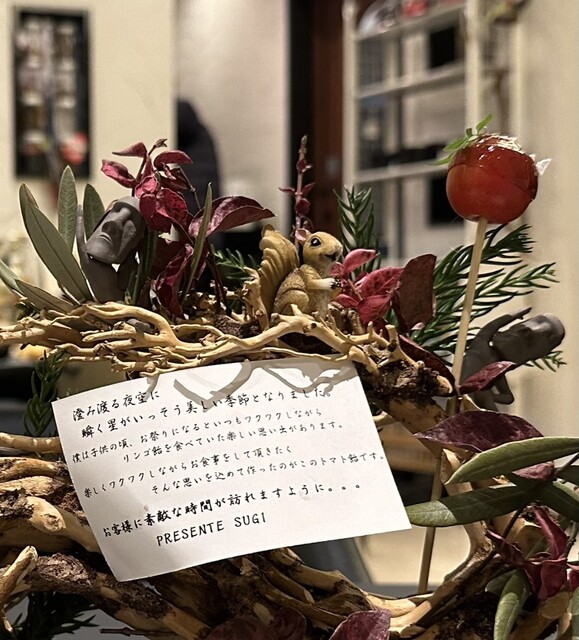 澄み渡る夜空に
瞬く星がいっそう美しい季節となりました。
僕は子供の頃、お祭りになるといつもワクワクしながら
リンゴ飴を食べていた楽しい思い出があります。
楽しくワクワクしながらお食事をして頂きたく
そんな思いを込めて作ったのがこのトマト飴です。
お客様に素敵な時間が訪れますように。。。
PRESENTE SUGI